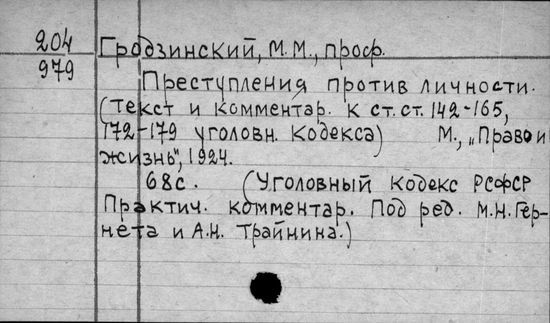 204
979
Гродзинский, М.М., проф.
Преступления против личности.
(Текст и комментар. к ст.ст. 142-165,
172-179 уголовн. кодекса) М., „Право и
жизнь", 1924.
68с. (Уголовный кодекс РСФСР
Практич. комментар. Под ред. М.Н. Гер-
нета и А.Н. Трайнина.)